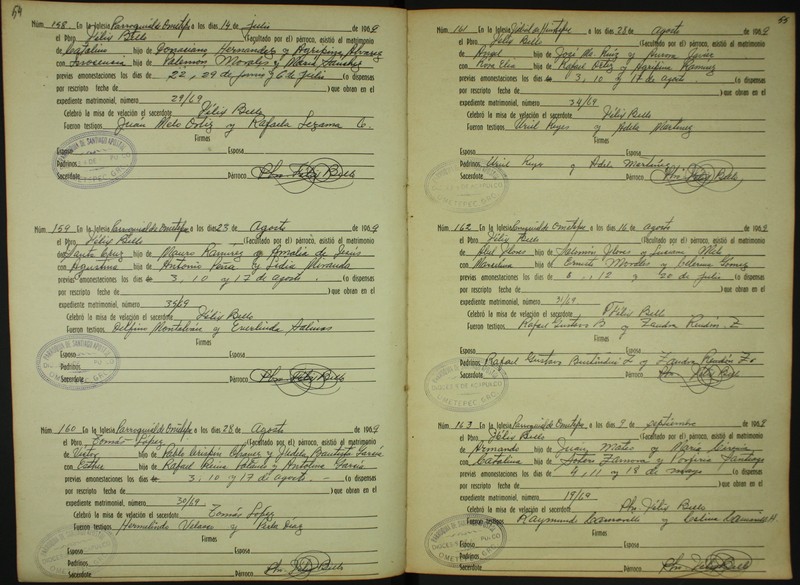 54
Núm. 158 En la Iglesia Parroquial de Ometepec a los días 14 de Julio de 1969
el Pbro. Félix Bello (Facultado por el) párroco, asistió al matrimonio
de Catalino hijo de Hernandez y Agripina Alvarez
con Inocencia hija de Palemon Morales y Maria Sanchez
previas amonestaciones los días de 22, 29 de junio y 6 de Julio (o dispensas
por rescripto fecha de ) que obran en el
expediente matrimonial, número 29/69
Celebró la misa de velación el sacerdote Félix Bello
Fueron testigos Juan Melo Ortiz y Rafaela Lezama C.
Firmas
Esposo Esposa
Padrinos
Sacerdote Párroco Pbro Félix Bello
PARROQUIA DE SANTIAGO APOSTOL
OMETEPEC, GRO.
Núm. 159 En la Iglesia Parroquial de Ometepec a los días 23 de Agosto de 1969
el Pbro. Félix Bello (Facultado por el) párroco, asistió al matrimonio
de Santa Cruz hijo de Mauro Ramirez y Amalia de Jesús
con Agustina hija de Antonio Peña y Lidia Miranda
previas amonestaciones los días de 3, 10 y 17 de agosto (o dispensas
por rescripto fecha de ) que obran en el
expediente matrimonial, número
Celebró la misa de velación el sacerdote Félix Bello
Fueron testigos Delfino Montalván y Ereslinda Salinas
Firmas
Esposo Esposa
Padrinos
Sacerdote Párroco Pbro Félix Bello
PARROQUIA DE SANTIAGO APOSTOL
OMETEPEC, GRO.
Núm. 160 En la Iglesia Parroquial de Ometepec a los días 28 de Agosto de 1969
el Pbro. Tomás Lopez (Facultado por el) párroco, asistió al matrimonio
de Victor hijo de Pablo Crispin Chavez y Adela Bautista García
con Esther hija de Rafael Solano y Antolina García
previas amonestaciones los días de 3, 10 y 17 de agosto. (o dispensas
por rescripto fecha de ) que obran en el
expediente matrimonial, número 30/69
Celebró la misa de velación el sacerdote Tomás Lopez
Fueron testigos Hermelindo Velarez y Diaz
Firmas
Esposo Esposa
Padrinos
Sacerdote Párroco Pbro Félix Bello
55
Núm. 161 En la Iglesia a los días 28 de agosto de 1969
el Pbro. Félix Bello (Facultado por el) párroco, asistió al matrimonio
de Angel hijo de José Ma. Ruiz y Aurora
con Rosa Elia hija de Rafael Ortiz y Agripina Ramirez
previas amonestaciones los días de 3, 10 y 17 de agosto (o dispensas
por rescripto fecha de ) que obran en el
expediente matrimonial, número 34/69
Celebró la misa de velación el sacerdote Félix Bello
Fueron testigos Uriel Reyes y Adela Martinez
Firmas
Esposo Esposa
Padrinos Uriel Reyes y Adela Martinez
Sacerdote Párroco Pbro Félix Bello
Núm. 162 En la Iglesia Parroquial de Ometepec a los días 16 de agosto de 1969
el Pbro. Félix Bello (Facultado por el) párroco, asistió al matrimonio
de Flores hijo de Salomón Flores y Susana Melo
con Marcelina hija de Ernesto Morales y Celerina Gomez
previas amonestaciones los días de 6, 12 y 20 de julio (o dispensas
por rescripto fecha de ) que obran en el
expediente matrimonial, número 31/69
Celebró la misa de velación el sacerdote Félix Bello
Fueron testigos Rafael Gustavo B y Zandra Rendón Z
Firmas
Esposo Esposa
Padrinos Rafael Gustavo y Zandra Rendón Z
Sacerdote Párroco Pbro Félix Bello
DIOCESIS DE ACAPULCO
OMETEPEC, GRO.
Núm. 163 En la Iglesia Parroquial de Ometepec a los días 9 de septiembre de 1969
el Pbro. Félix Bello (Facultado por el) párroco, asistió al matrimonio
de Armando hijo de Juan Mateo y Maria
con Catalina hija de Zamora y Porfiria Santiago
previas amonestaciones los días de 4, 11 y 18 de mayo (o dispensas
por rescripto fecha de ) que obran en el
expediente matrimonial, número 18/69
Celebró la misa de velación el sacerdote Pbro Félix Bello
Fueron testigos Raymundo y
Firmas
Esposo Esposa
Padrinos
Sacerdote Párroco Pbro Félix Bello